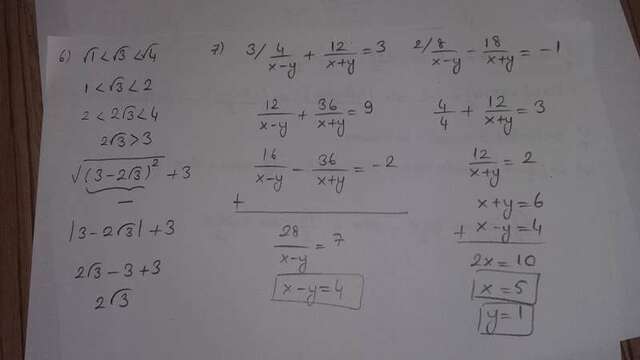 6) √1 < √3 < √4
1 < √3 < 2
2 < 2√3 < 4
2√3 > 3
√(3 - 2√3)² + 3
-
|3 - 2√3| + 3
2√3 - 3 + 3
2√3
7) 3/ 4/(x-y) + 12/(x+y) = 3
2/ 8/(x-y) - 18/(x+y) = -1
12/(x-y) + 36/(x+y) = 9
16/(x-y) - 36/(x+y) = -2
+
28/(x-y) = 7
x-y = 4
4/4 + 12/(x+y) = 3
12/(x+y) = 2
x+y = 6
+ x-y = 4
2x = 10
x = 5
y = 1